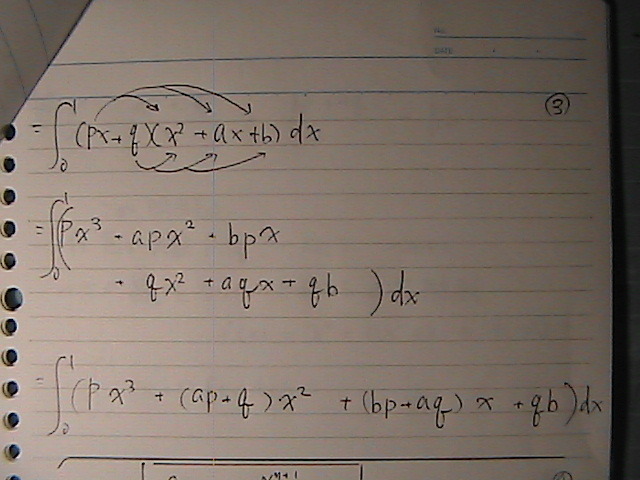 No.
DATE
③
= ∫₀¹ (px + q)(x² + ax + b) dx
= ∫₀¹ (px³ + apx² + bpx
+ qx² + aqx + qb ) dx
= ∫₀¹ (px³ + (ap + q)x² + (bp + aq) x + qb) dx
xⁿ⁺¹